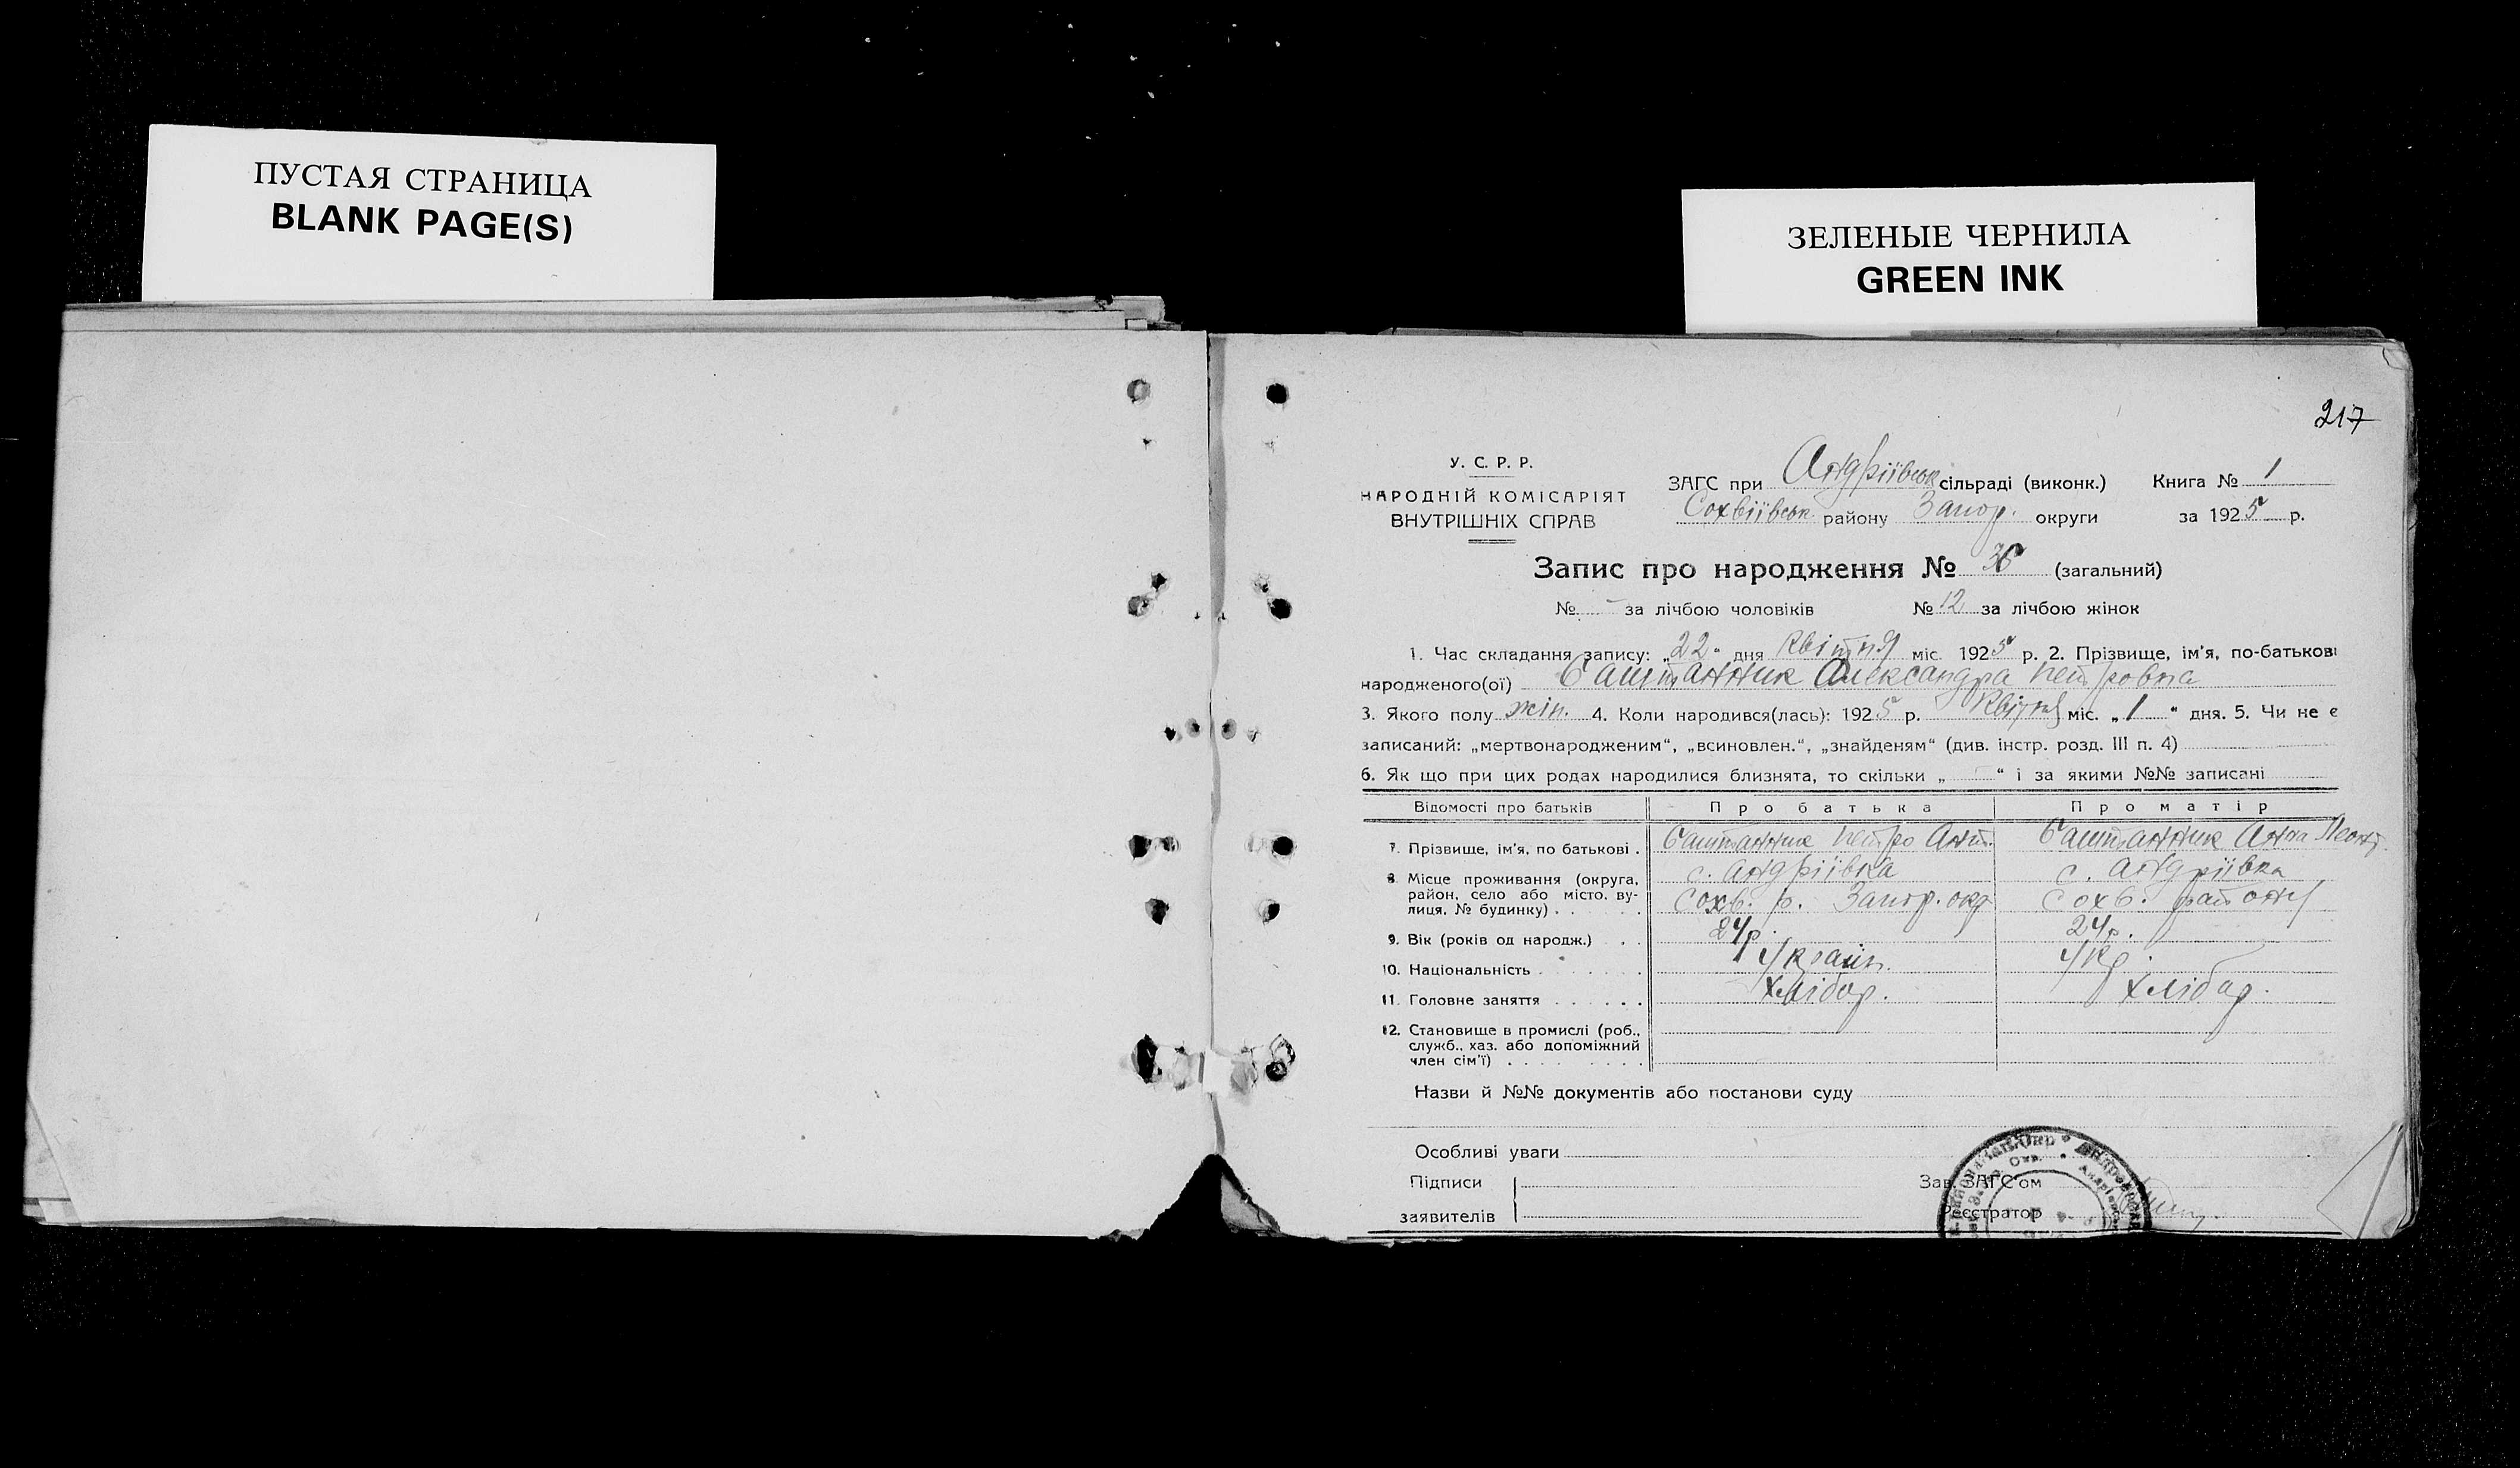 ПУСТАЯ СТРАНИЦА
BLANK PAGE(S)
ЗЕЛЕНЫЕ ЧЕРНИЛА
GREEN INK
217
У. С. Р. Р.
НАРОДНІЙ КОМІСАРІЯТ
ВНУТРІШНІХ СПРАВ
ЗАГС при Андріївськ сільраді (виконк.) Книга № 1
Сохвіївськ. району Запор. округи за 1925 р.
Запис про народження № (загальний)
№ - за лічбою чоловіків № 12 за лічбою жінок
1. Час складання запису: „22“ дня Квітня міс 1925 р. 2. Прізвище, ім'я, по-батькові
народженого(ої) Баштанник Александра Петровна
3. Якого полу жін. 4. Коли народився(лась): 1925 р. Квітня міс. „1“ дня. 5. Чи не є
записаний: „мертвонародженим“, „всиновлен.“, „знайденям“ (див. інстр. розд. III п. 4)
6. Як що при цих родах народилися близнята, то скільки „ “ і за якими №№ записані
Відомості про батьків Про батька Про матір
7. Прізвище, ім'я, по батькові . Баштанник Петро Ант. Баштанник Анна Леонт.
8. Місце проживання (округа, район, село або місто, вулиця, № будинку) с. Андріївка с. Андріївка
Сохв. р. Запор. окр Сохв. району
9. Вік (років од народж.) 24р. 24р.
10. Національність Україн. Укр.
11. Головне заняття Хлібор. Хлібор.
12. Становище в промислі (роб.,
служб., хаз. або допоміжний
член сім'ї)
Назви й №№ документів або постанови суду
Особливі уваги
Підписи
заявителів
Зав. ЗАГС'ом
Реєстратор